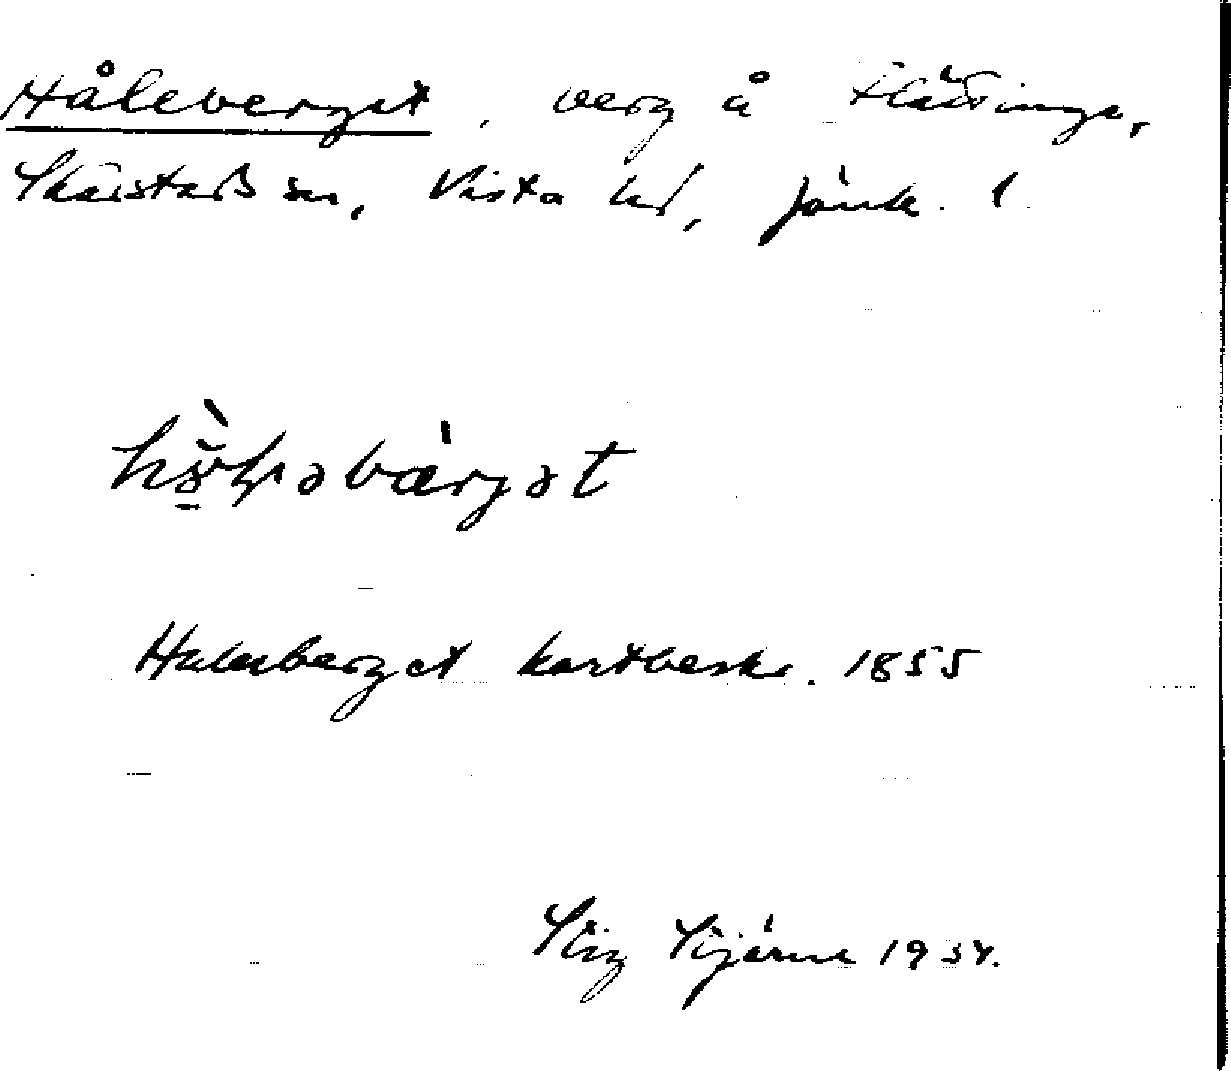 Håleberget, berg å Flättinge,
Skärstads sn, Vista hd, Jönk. l.
Holmberget kartbeskr. 1855
Stig Stjärne 1934.